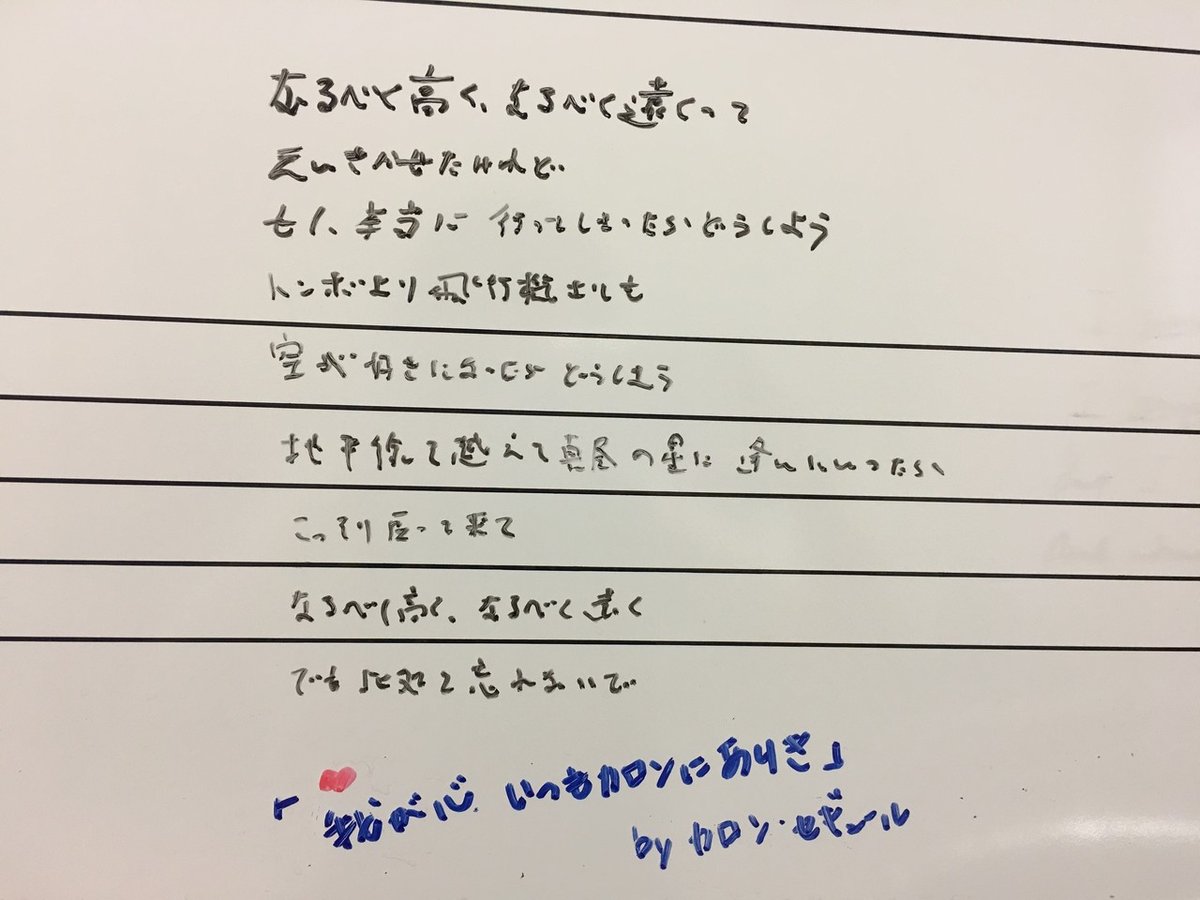 なるべく高く、なるべく遠くって
言いきかせたけれど
もし、本当に 行ってしまったらどうしよう
トンボより飛行機よりも
空が好きになったら どうしよう
地平線を越えて真昼の星に 逢いにいったら
こっそり戻って来て
なるべく高く、なるべく遠く
でも 此処を忘れないで
「我が心 いつもカロンにありき」
by カロン・セギュール